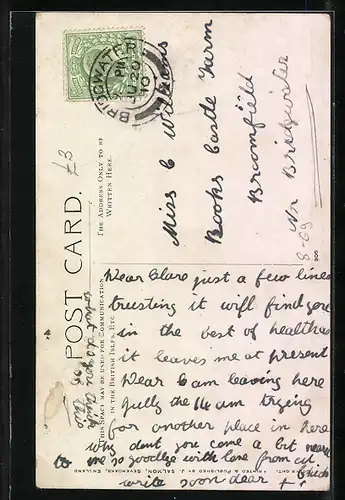 BRIDGWATER
PM
JU 20
10
Miss C Williams
Rooks Castle Farm
Broomfield
Nr Bridgwater
8-69
£3
POST CARD.
THE ADDRESS ONLY TO BE
WRITTEN HERE.
THIS SPACE MAY BE USED FOR COMMUNICATION
IN THE BRITISH ISLES, ETC.
PRINTED & PUBLISHED BY J. SALMON, SEVENOAKS, ENGLAND
Dear Clare just a few lines
trusting it will find you
in the best of health as
it leaves me at present
Dear I am leaving here
July the 14 am trying
for another place in here
why dont you come a bit nearer
to me so goodbye with love from
write soon dear
what do you think